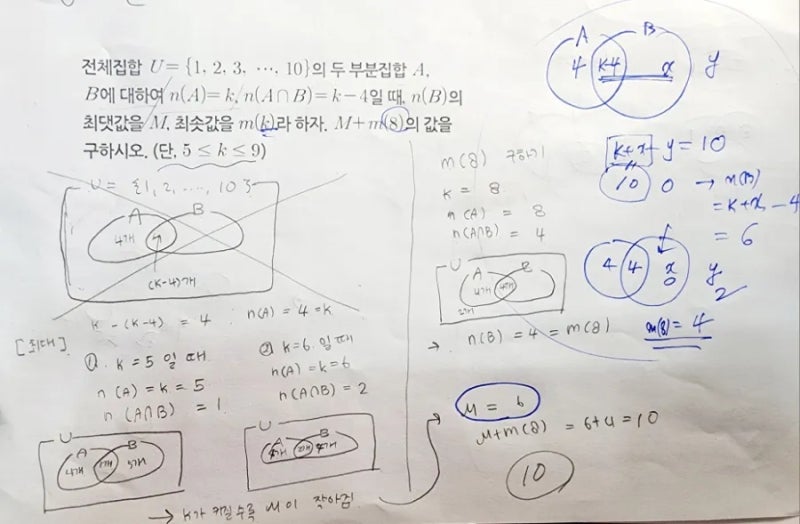 전체집합 U = {1, 2, 3, ⋯, 10}의 두 부분집합 A,
B에 대하여 n(A)=k, n(A∩B)=k-4일 때, n(B)의
최댓값을 M, 최솟값을 m(k)라 하자. M+m(8)의 값을
구하시오. (단, 5 ≤ k ≤ 9)
U = {1, 2, ..., 10}
A B
4개
(k-4)개
k - (k-4) = 4 n(A) = 4 = k
[최대]
① k = 5 일 때
n(A) = k = 5
n(A∩B) = 1
U
A B
4개 1개 5개
② k=6 일 때
n(A) = k = 6
n(A∩B) = 2
U
A B
4개 2개 4개
→ k가 커질수록 M이 작아짐
m(8) 구하기
k = 8
n(A) = 8
n(A∩B) = 4
U
A B
4개 4개
2개
→ n(B) = 4 = m(8)
M = 6
M+m(8) = 6+4 = 10
10
A B
4 k-4 x y
k+x+y = 10
10 0 → n(B)
= k+x-4
= 6
4 4 x y
0 2
m(8) = 4